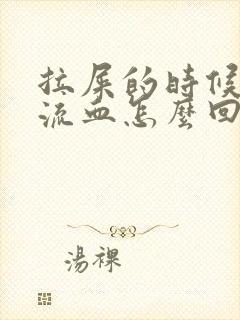 拉屎的時候
流血怎麼回
湯裸